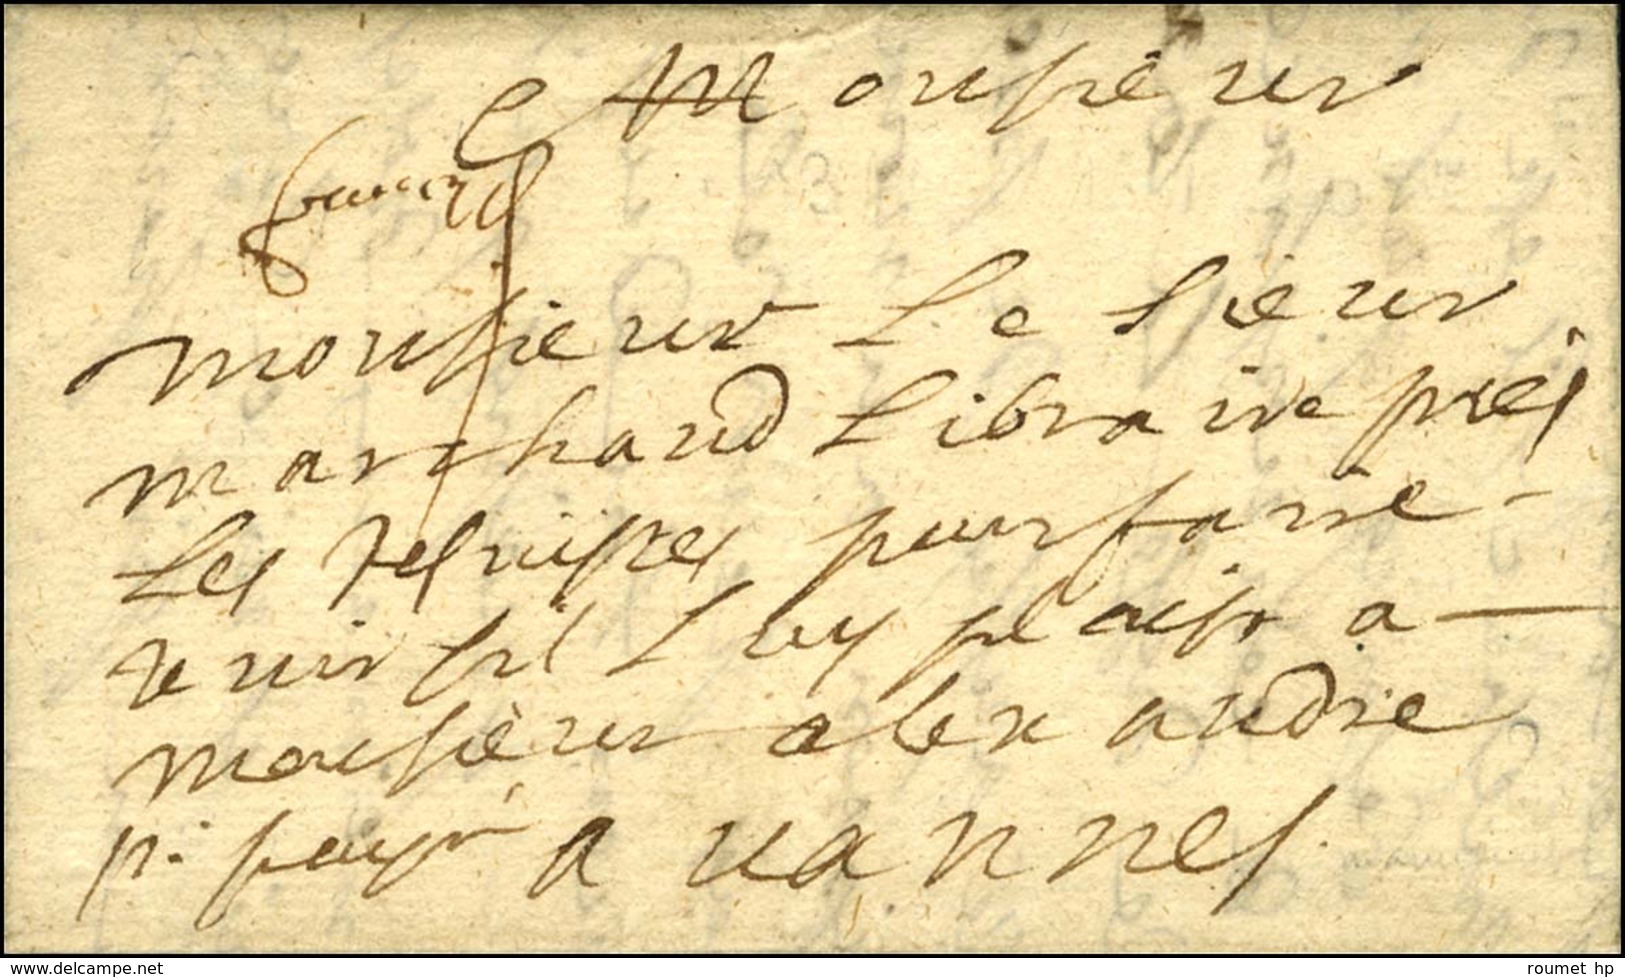 Monsieur
Monsieur Le sieur
marchand Libraire pres
Les Jesuistes pour faire
tenir s'il Luy plaist a
monsieur alexandre
a vannes
roumet hp
www.delcampe.net